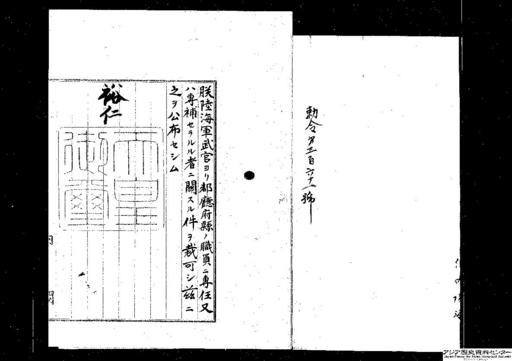 勅令第二百六十一號
朕陸海軍武官ヨリ都廳府縣ノ職員ニ專任又
ハ專補セラルル者ニ關スル件ヲ裁可シ茲ニ
之ヲ公布セシム
裕仁
天皇御璽
アジア歴史資料センター